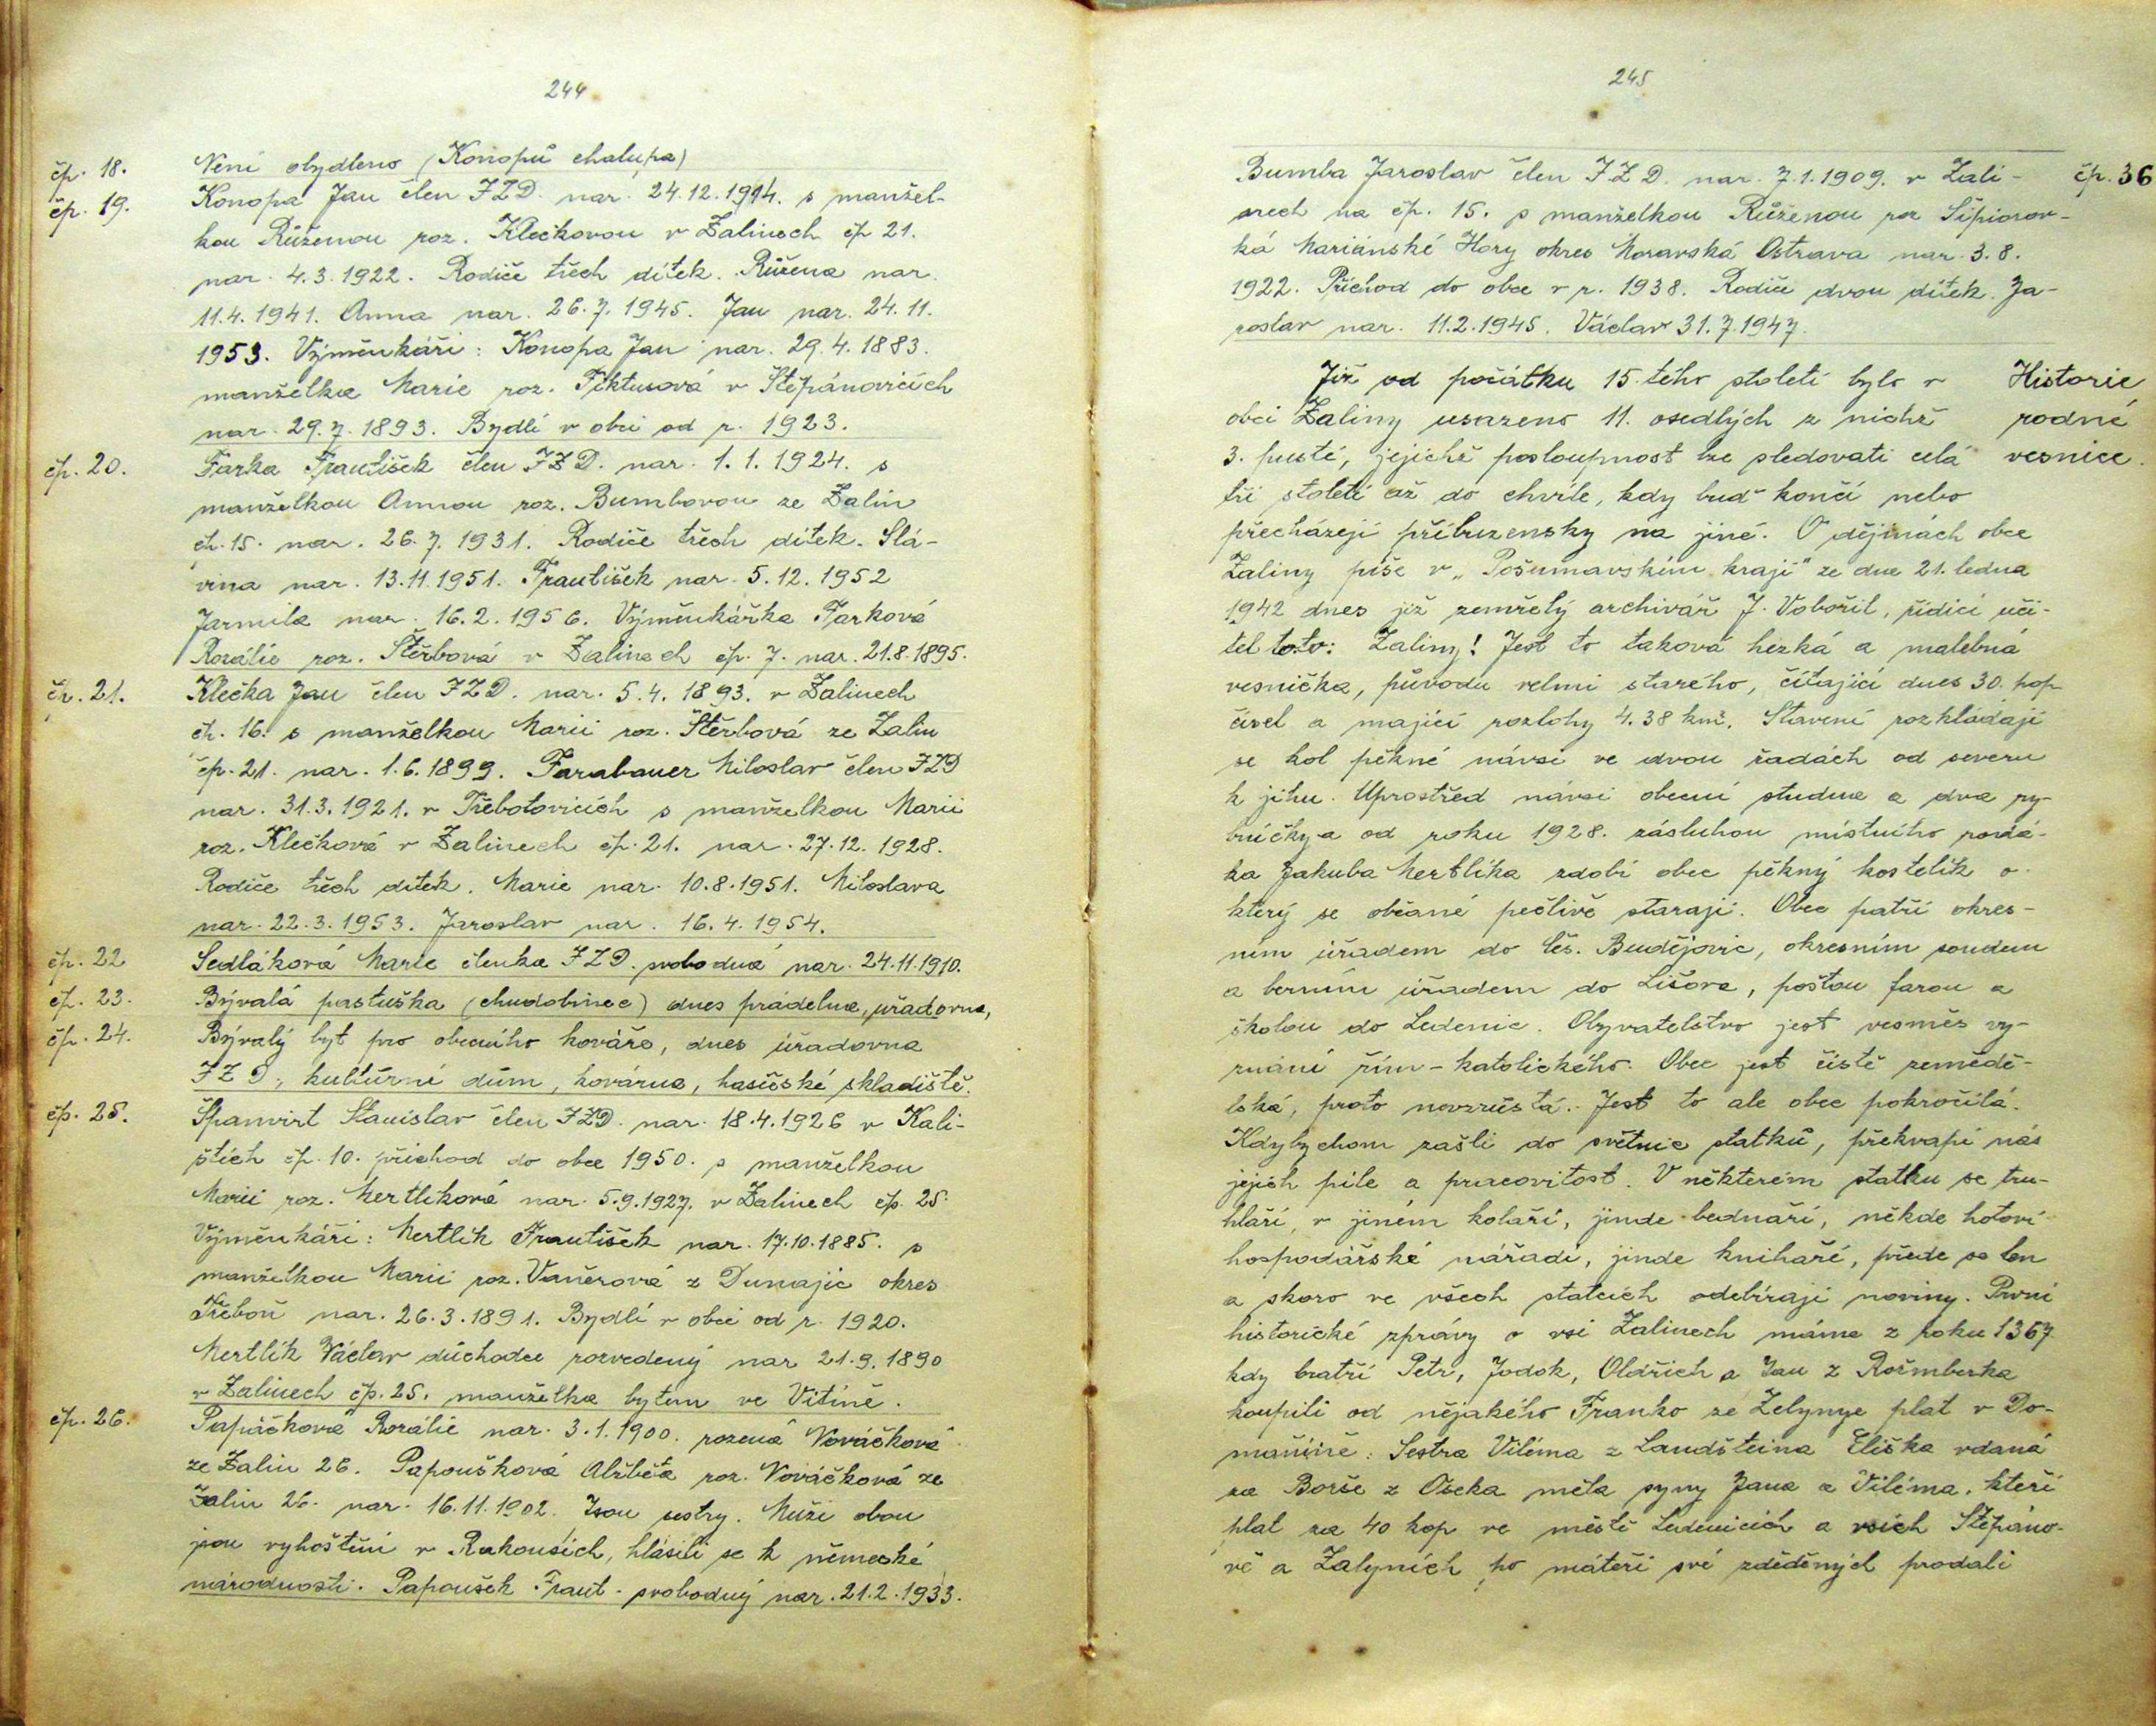 244
čp. 18. Není obydleno (Konopů chalupa)
čp. 19. Konopa Jan člen JZD. nar. 24.12.1914. s manžel-
kou Růženou roz. Klečkovou v Žalinech čp 21.
nar. 4.3.1922. Rodiče třech dítek. Růžena nar.
11.4.1941. Anna nar. 26.7.1945. Jan nar. 24.11.
1953. Výměnkáři: Konopa Jan nar. 29.4.1883.
manželka Marie roz. Fiktusová v Štěpánovicích
nar. 29.7.1893. Bydlí v obci od r. 1923.
čp. 20. Farka František člen JZD. nar. 1.1.1924. s
manželkou Annou roz. Bumbovou ze Žalin
čp. 15. nar. 26.7.1931. Rodiče třech dítek. Slá-
vina nar. 13.11.1951. František nar. 5.12.1952
Jarmila nar. 16.2.1956. Výměnkářka Farková
Rozálie roz. Štěrbová v Žalinech čp. 7. nar. 21.8.1895.
čp. 21. Klečka Jan člen JZD. nar. 5.4.1893. v Žalinech
čp. 16. s manželkou Marii roz. Štěrbová ze Žalin
čp. 21. nar. 1.6.1899. Farabauer Miloslav člen JZD
nar. 31.3.1921. v Třebotovicích s manželkou Marii
roz. Klečková v Žalinech čp. 21. nar. 27.12.1928.
Rodiče třech dítek. Marie nar. 10.8.1951. Miloslava
nar. 22.3.1953. Jaroslav nar. 16.4.1954.
čp. 22 Sedláková Marie členka JZD. svobodná nar. 24.11.1910.
čp. 23. Bývalá pastuška (chudobinec) dnes prádelna, uřadovna,
čp. 24. Bývalý byt pro obecního kováře, dnes úřadovna
JZD, kultúrní dům, kovárna, hasičské skladiště.
čp. 25. Španvirt Stanislav člen JZD. nar. 18.4.1926 v Kali-
štích čp. 10. příchod do obce 1950. s manželkou
Marii roz. Mertlíková nar. 5.9.1927. v Žalinech čp. 25.
Výměnkáři: Mertlík František nar. 17.10.1885. s
manželkou Marii roz. Vančurová z Dunajic okres
Třeboň nar. 26.3.1891. Bydlí v obci od r. 1920.
Mertlík Václav důchodce rozvedený nar 21.9.1890
v Žalinech čp. 25. manželka bytem ve Vitíně.
čp. 26. Papáčková Rozálie nar. 3.1.1900. rozená Nováčková
ze Žalin 26. Papoušková Alžběta roz. Nováčková ze
Žalin 26. nar. 16.11.1902. Jsou sestry. Muži obou
jsou vyhoštěni v Rakousích, hlásili se k německé
národnosti. Papoušek Frant. svobodný nar. 21.2.1933.
245
Bumba Jaroslav člen JZD. nar. 7.1.1909. v Žali- čp. 36
nech na čp. 15. s manželkou Růženou roz Sipiorov-
ká Mariánské Hory okres Moravská Ostrava nar. 3.8.
1922. Příchod do obce v r. 1938. Rodiče dvou dítek. Ja-
roslav nar. 11.2.1945. Václav 31.7.1947.
Již od počátku 15. tého století bylo v Historie
obci Žaliny usazeno 11. osedlých z nichž rodné
3. pusté, jejichž posloupnost lze sledovati celá vesnice.
tři století až do chvíle, kdy buď končí nebo
přecházejí příbuzensky na jiné. O dějinách obce
Žaliny píše v „Pošumavském kraji" ze dne 21. ledna
1942 dnes již zemřelý archivář J. Vobořil, řídící uči-
tel toto: Žaliny! Jest to taková hezká a malebná
vesnička, původu velmi starého, čítající dnes 30. pop
čísel a mající rozlohy 4.38 km². Stavení rozkládají
se kol pěkné návsi ve dvou řadách od severu
k jihu. Uprostřed návsi obecní studna a dva ry-
bníčky a od roku 1928. zásluhou místního rodá-
ka Jakuba Mertlíka zdobí obec pěkný kostelík o
který se občané pečlivě starají. Obec patří okres-
ním úřadem do Čes. Budějovic, okresním soudem
a berním úřadem do Lišova, poštou farou a
školou do Ledenic. Obyvatelstvo jest vesměs vy-
znání řím-katolického. Obec jest čistě zeměděl-
ská, proto nevzrůstá. Jest to ale obec pokročilá.
Kdybychom zašli do světnic statků, překvapí nás
jejich píle a pracovitost. V některém statku se tru-
hlaří, v jiném kolaří, jinde bednaří, někde hotoví
hospodářské nářadí, jinde knihaří, přede se len
a skoro ve všech statcích odebírají noviny. První
historické zprávy o vsi Žalinech máme z roku 1367
kdy bratři Petr, Jodok, Oldřich a Jan z Rožmberka
koupili od nějakého Franko ze Želynye plat v Do-
maníně. Sestra Viléma z Landšteina Eliška vdaná
za Borše z Oseka měla syny Jana a Viléma, kteří
plat za 40 kop ve městě Ledenicích a vsích Štěpáno-
vě a Žalyních po máteři své zděděných prodali